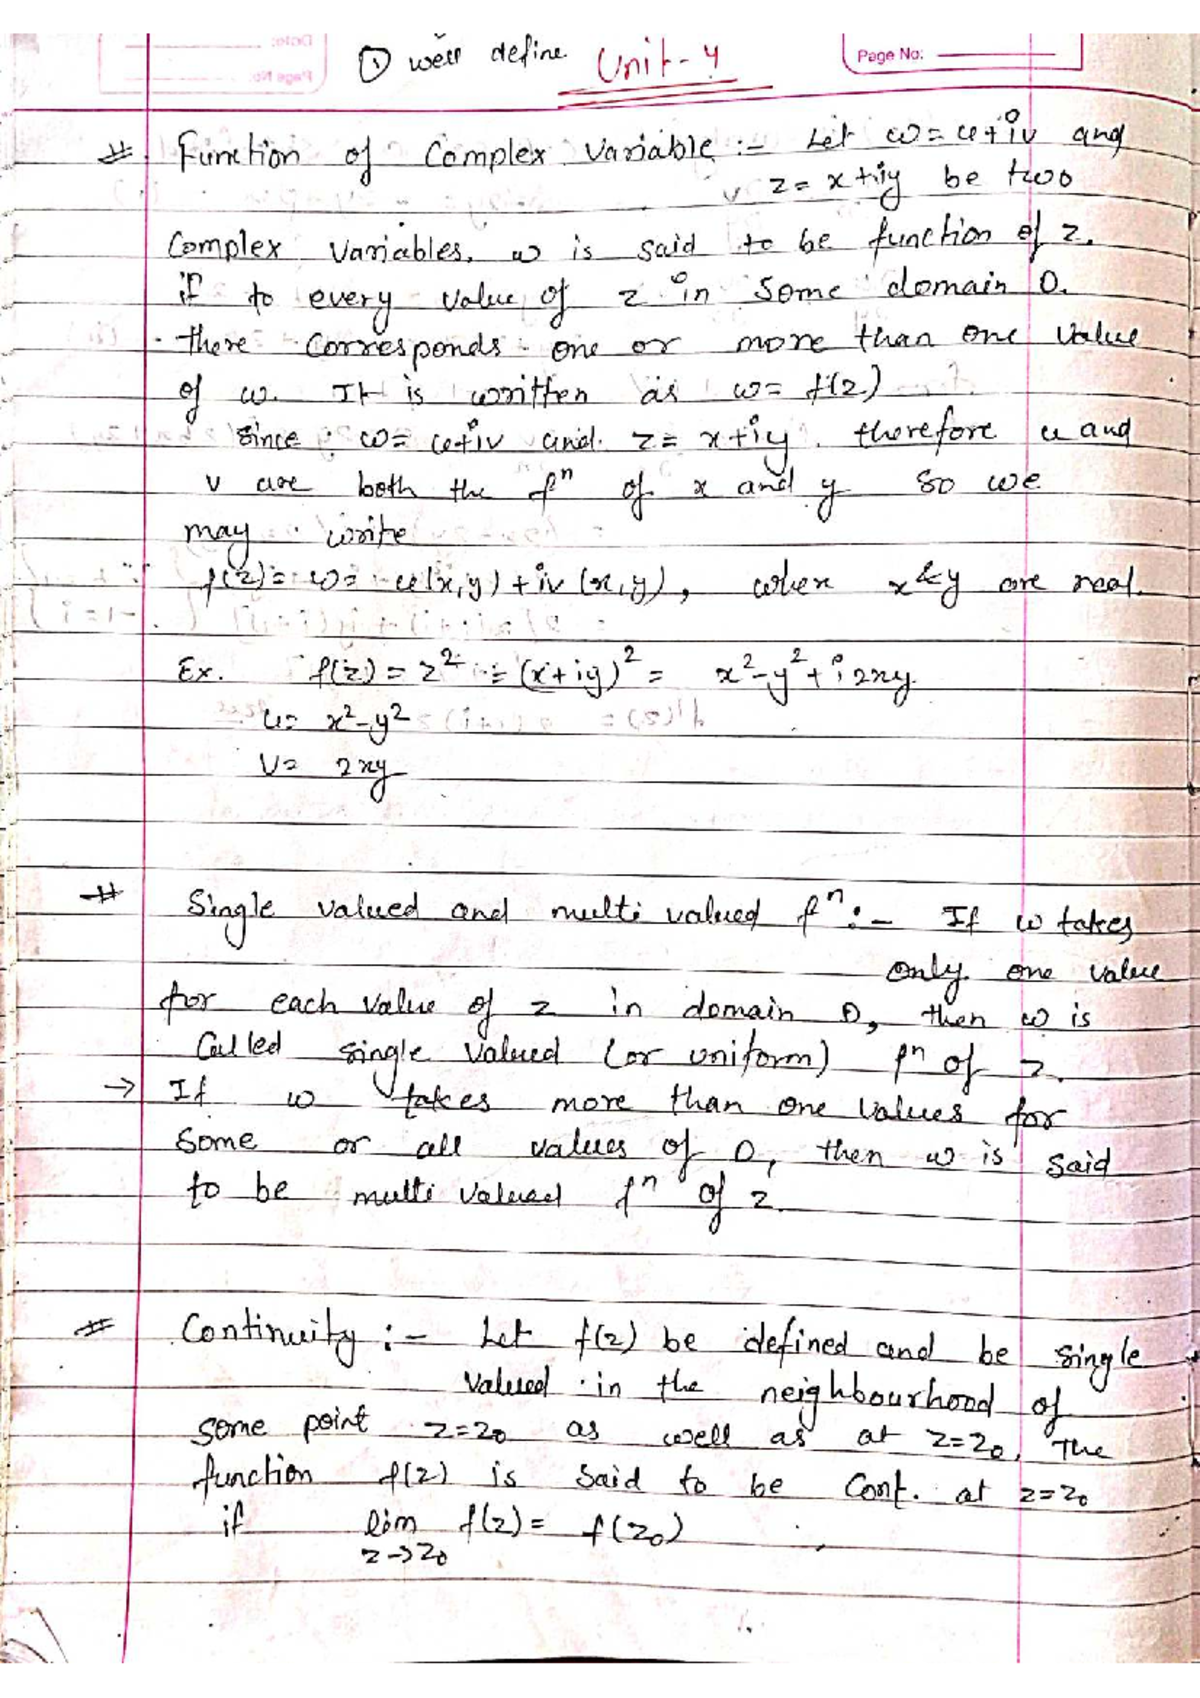 ① well define Unit-4 Page No:
# Function of Complex Variable :- Let ω = u+iv and
z = x+iy be two
Complex Variables. ω is said to be function of z.
if to every value of z in some domain D.
there Corresponds one or more than one value
of ω. It is written as ω = f(z)
since ω = u+iv and z = x+iy. therefore u and
v are both the fⁿ of x and y so we
may write
f(z) = ω = u(x,y) + iv(x,y), when x & y are real.
Ex. f(z) = z² = (x+iy)² = x²-y²+i2xy
u = x²-y²
V = 2xy
# Single valued and multi valued fⁿ :- If ω takes
only one value
for each value of z in domain D, then ω is
Called single valued (or uniform) fⁿ of z.
→ If ω takes more than one values for
some or all values of D, then ω is said
to be multi valued fⁿ of z.
# Continuity :- Let f(z) be defined and be single
valued in the neighbourhood of
some point z=z₀ as well as at z=z₀. The
function f(z) is said to be Cont. at z=z₀
if lim f(z) = f(z₀)
z→z₀